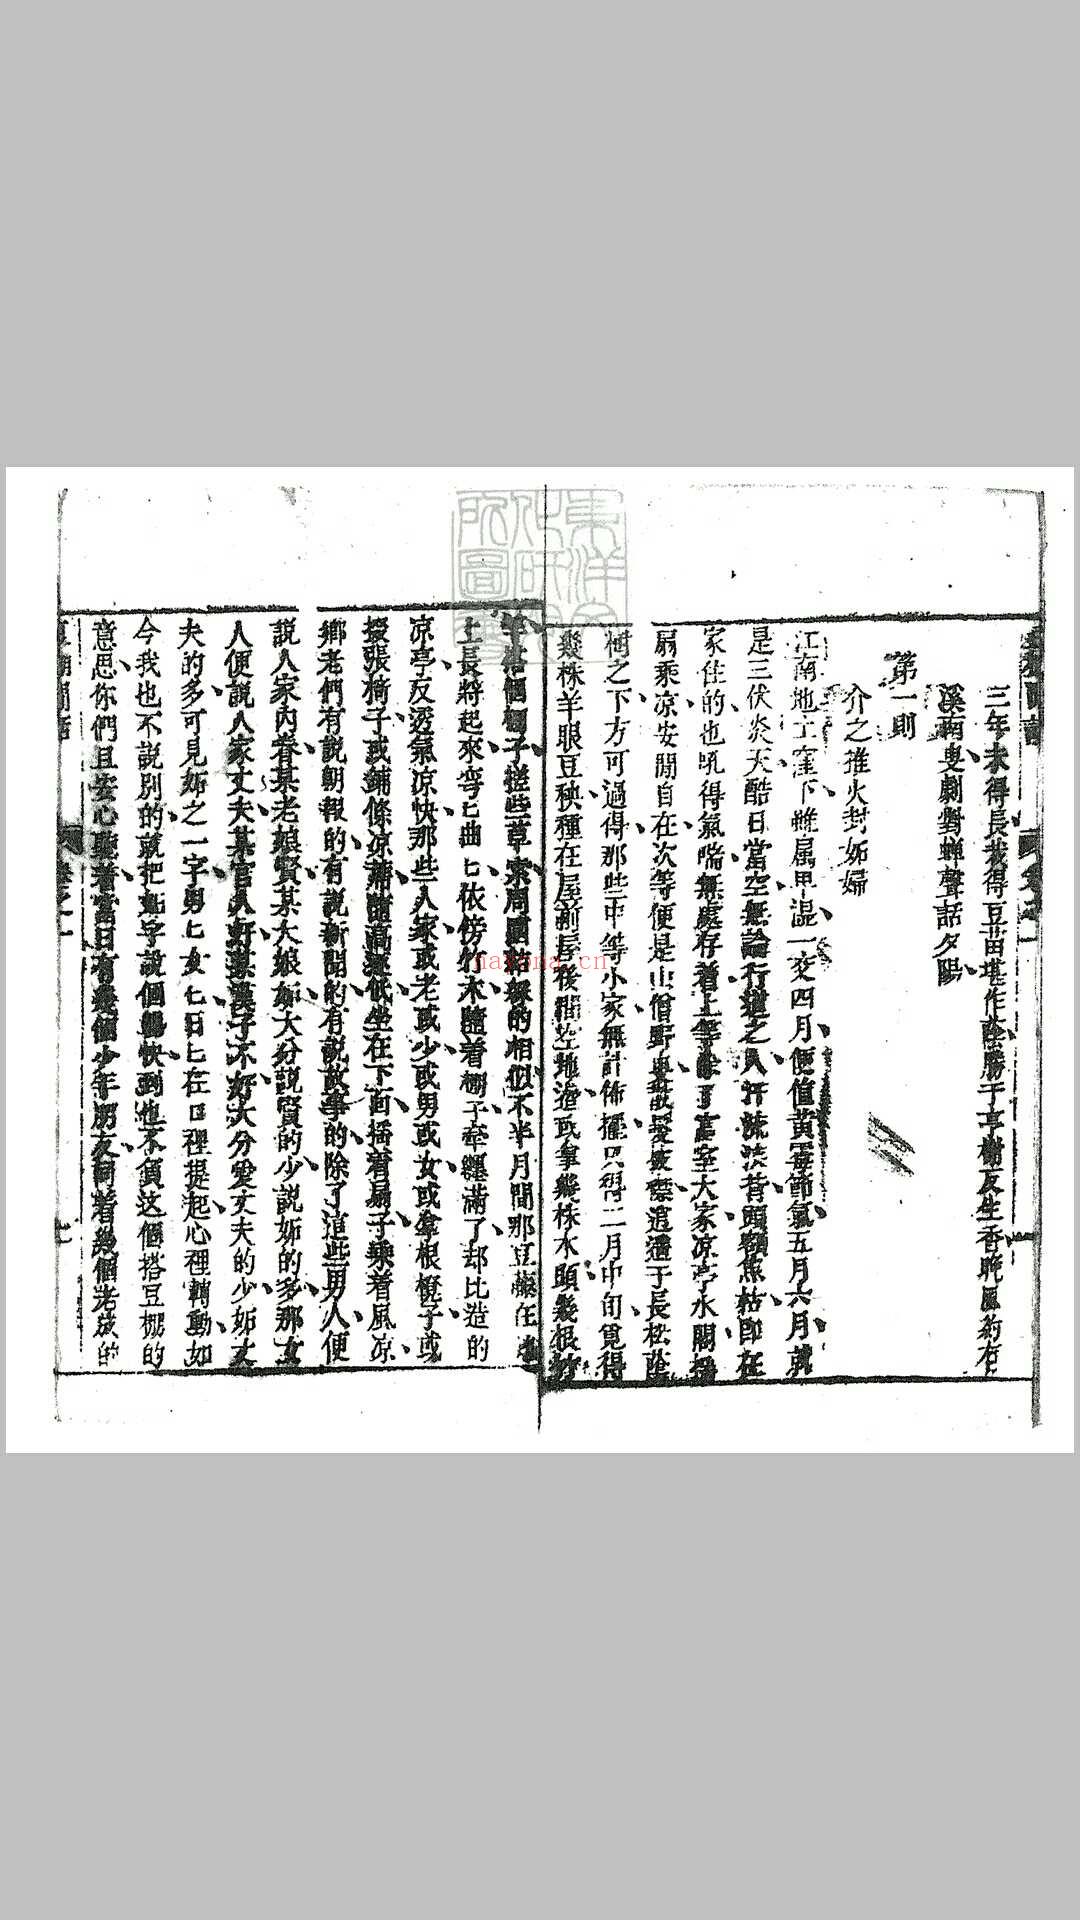 三年未得長栽得豆苗堪作蔭勝于亭榭反生香晚風約有
溪南叟劇對蟬聲話夕陽
第一則
介之推火封妬婦
江南地土窪下雖属卑濕一交四月便值黃霉節氣五月六月就
是三伏炎天酷日當空無論行道之人汗流浹背頭額焦枯即在
家住的也吼得氣喘無處存着上等除了富室大家凉亭水閣搖
扇乘凉安閒自在次等便是山僧野叟散髮披襟逍遥于長松蔭
樹之下方可過得那些中等小家無計佈擺只得二月中旬覓得
幾株羊眼豆秧種在屋前屋後閒空地邊或拿幾株木頭幾根竹
竿搭個棚子搓些草索周圍結綵的相似不半月間那豆藤在地
上長將起來弯匕曲匕依傍竹木隨着棚子牽纏滿了却比造的
凉亭反透氣凉快那些人家或老或少或男或女或拿根櫈子或
掇張椅子或鋪條凉蓆隨高逐低坐在下面搖着扇子乘着風凉
鄉老們有說朝報的有說新聞的有說故事的除了這些男人便
說人家內眷某老娘賢某大娘妬大分說賢的少說妬的多那女
人便說人家丈夫某官人好某漢子不好大分愛丈夫的少妬丈
夫的多可見妬之一字男匕女匕日匕在口裡提起心裡轉動如
今我也不說別的就把妬字說個暢快到也不負这個搭豆棚的
意思你們且安心聽着當日有幾個少年朋友同着幾個老成的
卷之一
七
nayona.cn